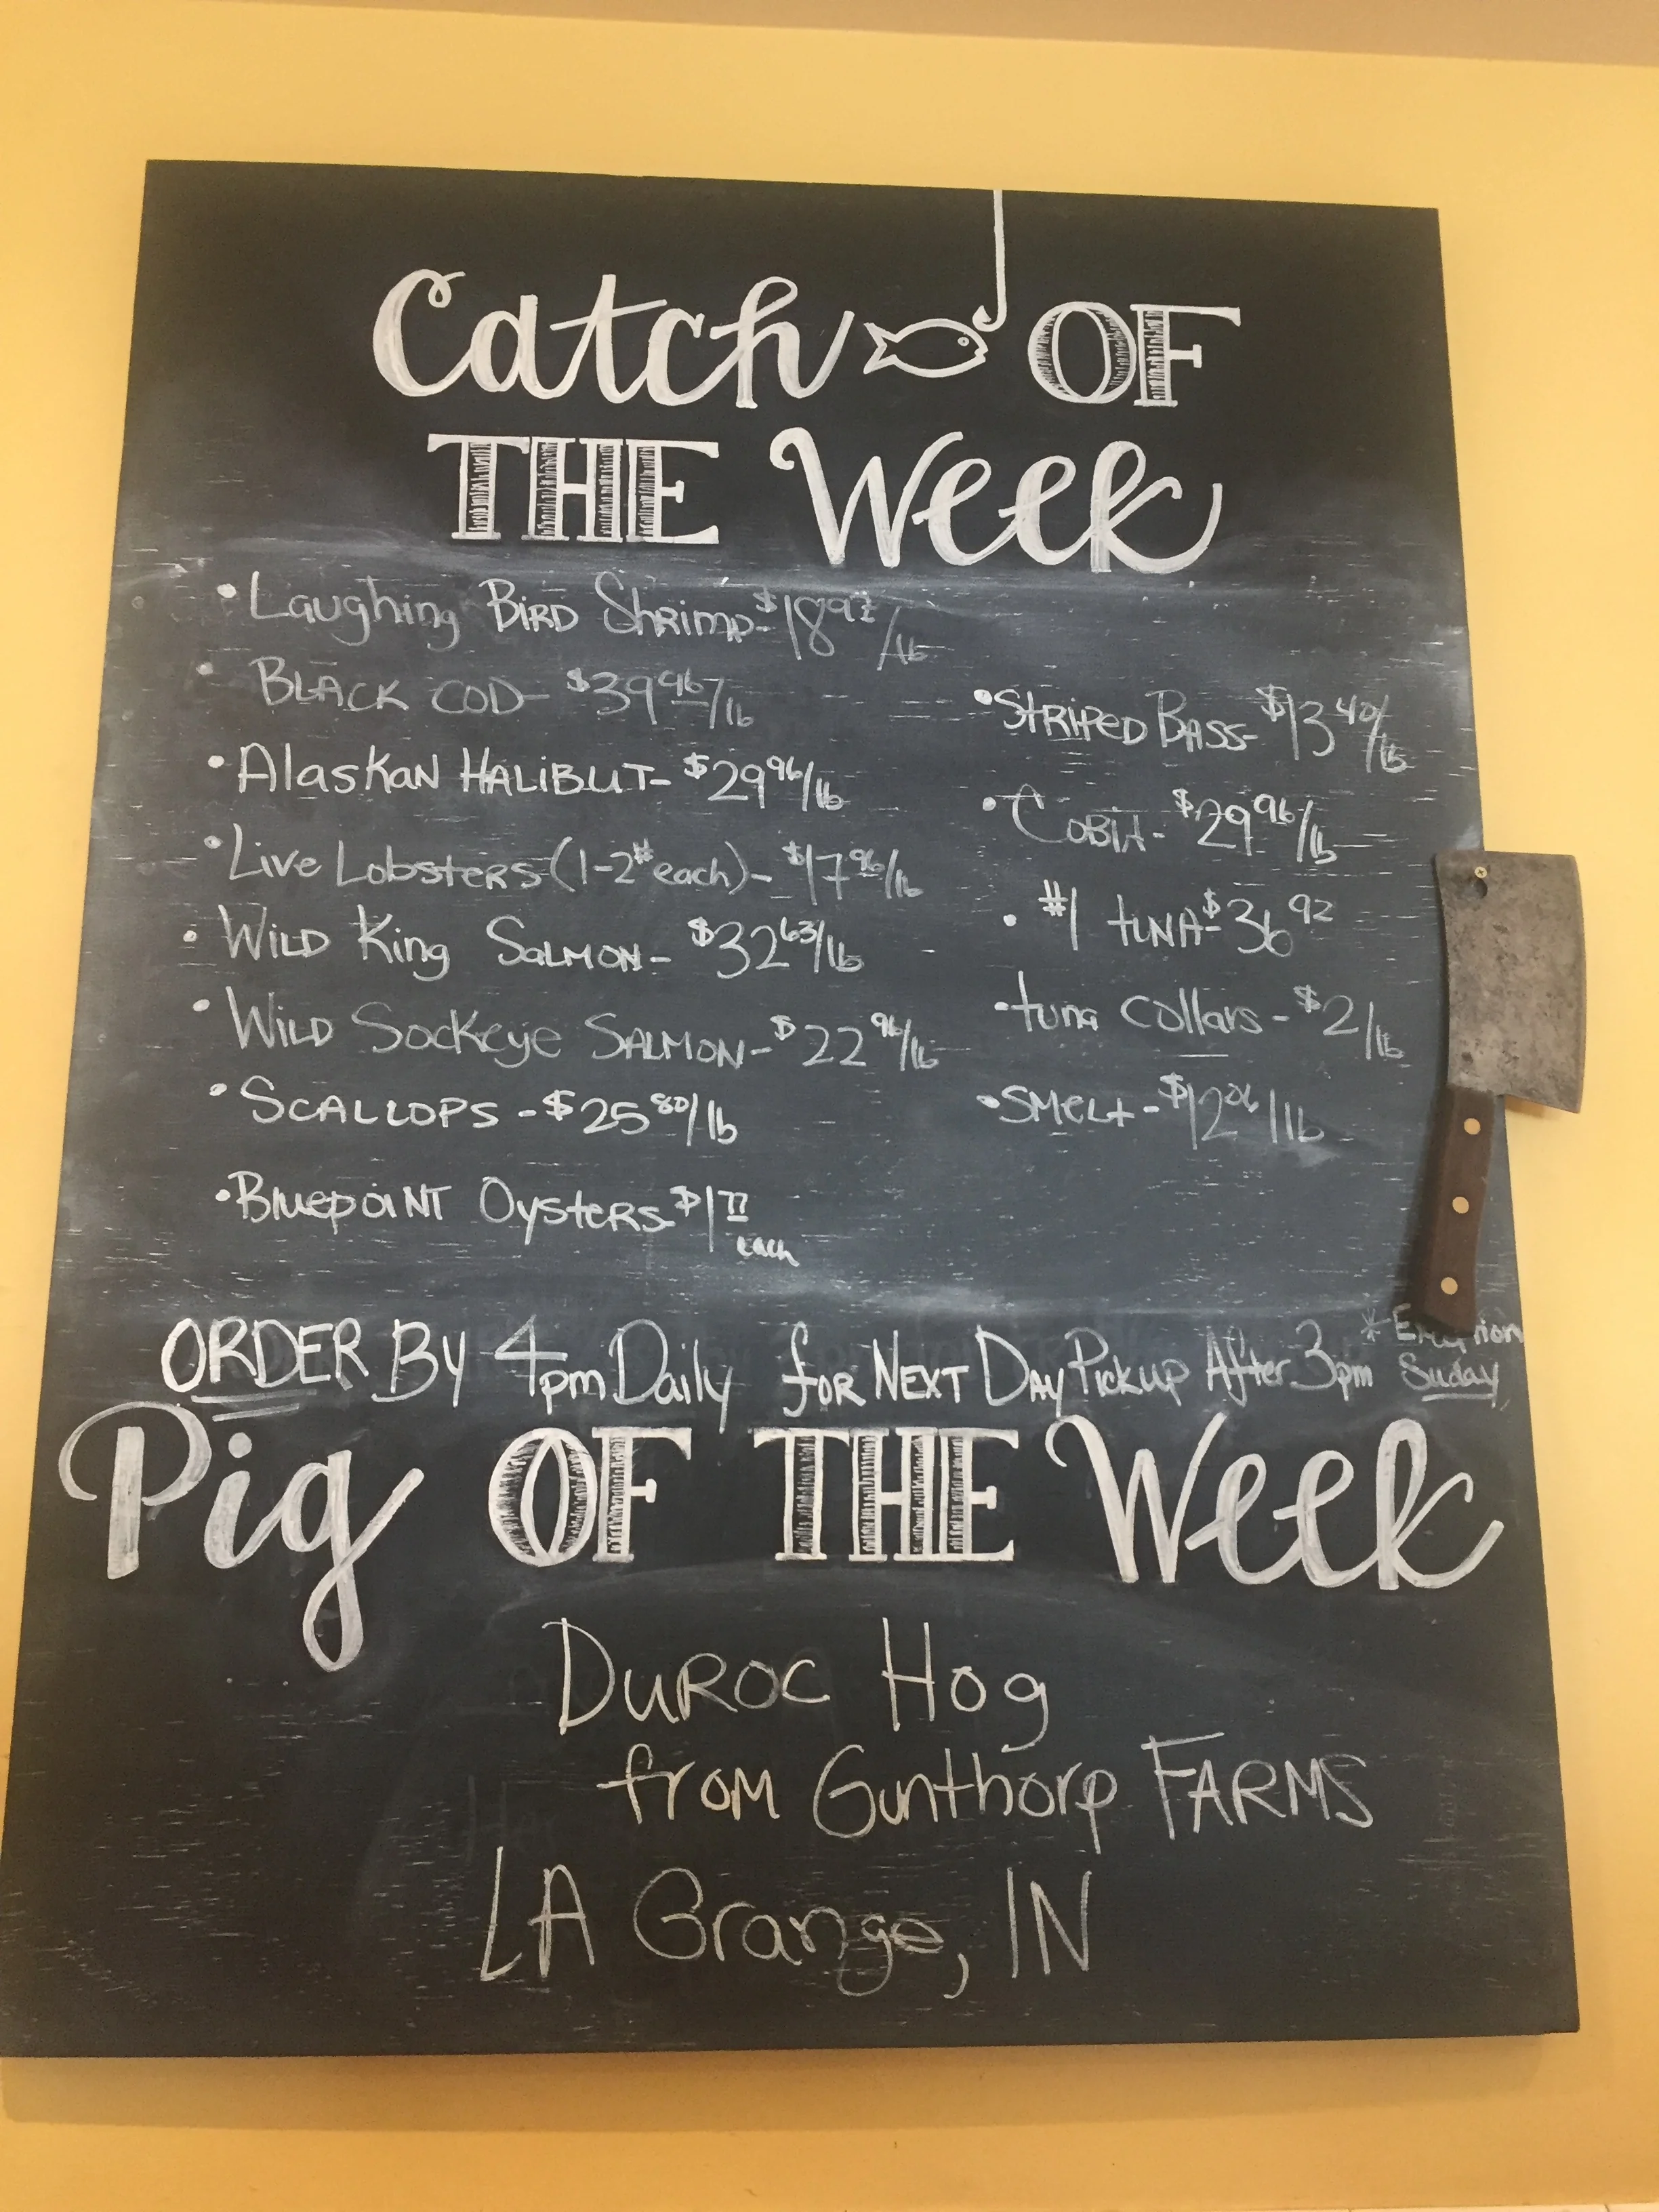 Catch OF
THE Week
• Laughing BIRD Shrimp - $18 92/lb
• BLACK COD - $39 96/lb
• Alaskan HALIBUT - $29 96/lb
• Live Lobsters (1-2# each) - $17 96/lb
• WILD King SALMON - $32 63/lb
• WILD Sockeye SALMON - $22 96/lb
• SCALLOPS - $25 80/lb
• Bluepoint Oysters - $1 77
each
• STRIPED BASS - $13 40/lb
• COBIA - $29 96/lb
• #1 tuna - $36 92
• tuna collars - $2/lb
• SMELT - $12 06/lb
ORDER By 4pm Daily for NEXT DAY Pickup After 3pm *
Suday
Pig OF THE Week
DUROC Hog
from Gunthorp FARMS
LA Grange, IN